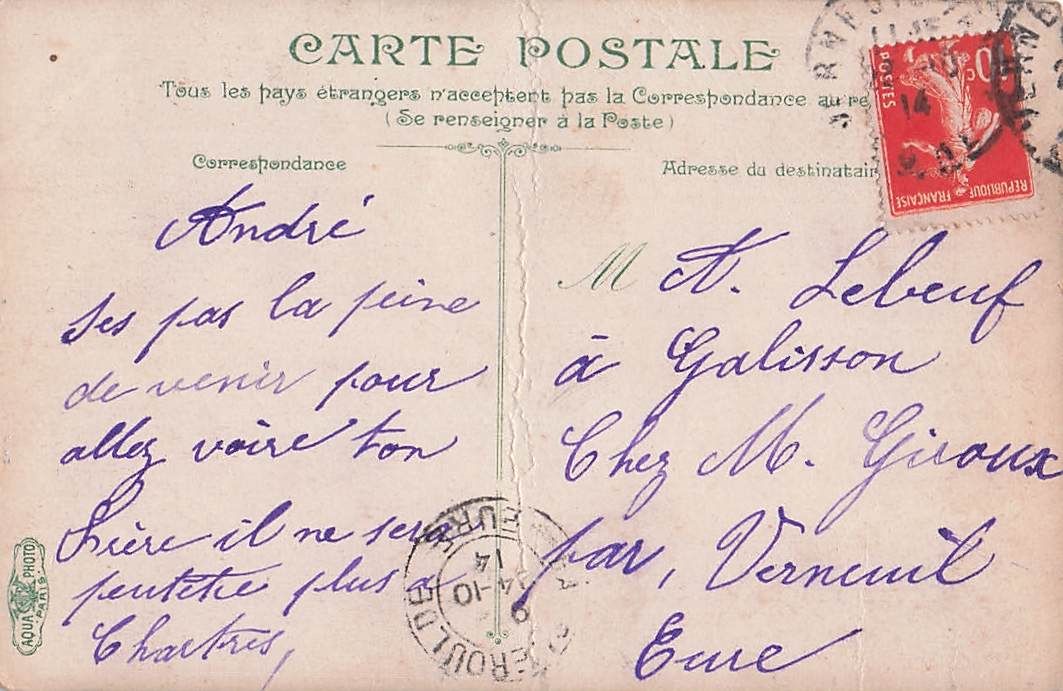 CARTE POSTALE
Tous les pays étrangers n'acceptent pas la Correspondance au re
(Se renseigner à la Poste)
Correspondance
Adresse du destinatair
10c
POSTES
REPUBLIQUE FRANÇAISE
14
André
ses pas la peine
de venir pour
allez voire ton
Frère il ne sera
peutetre plus a
Chartres,
M A. Lebeuf
à Galisson
Chez M. Giroux
par, Verneuil
Eure
EURE
14
4-10
9
AQUA PHOTO
PARIS